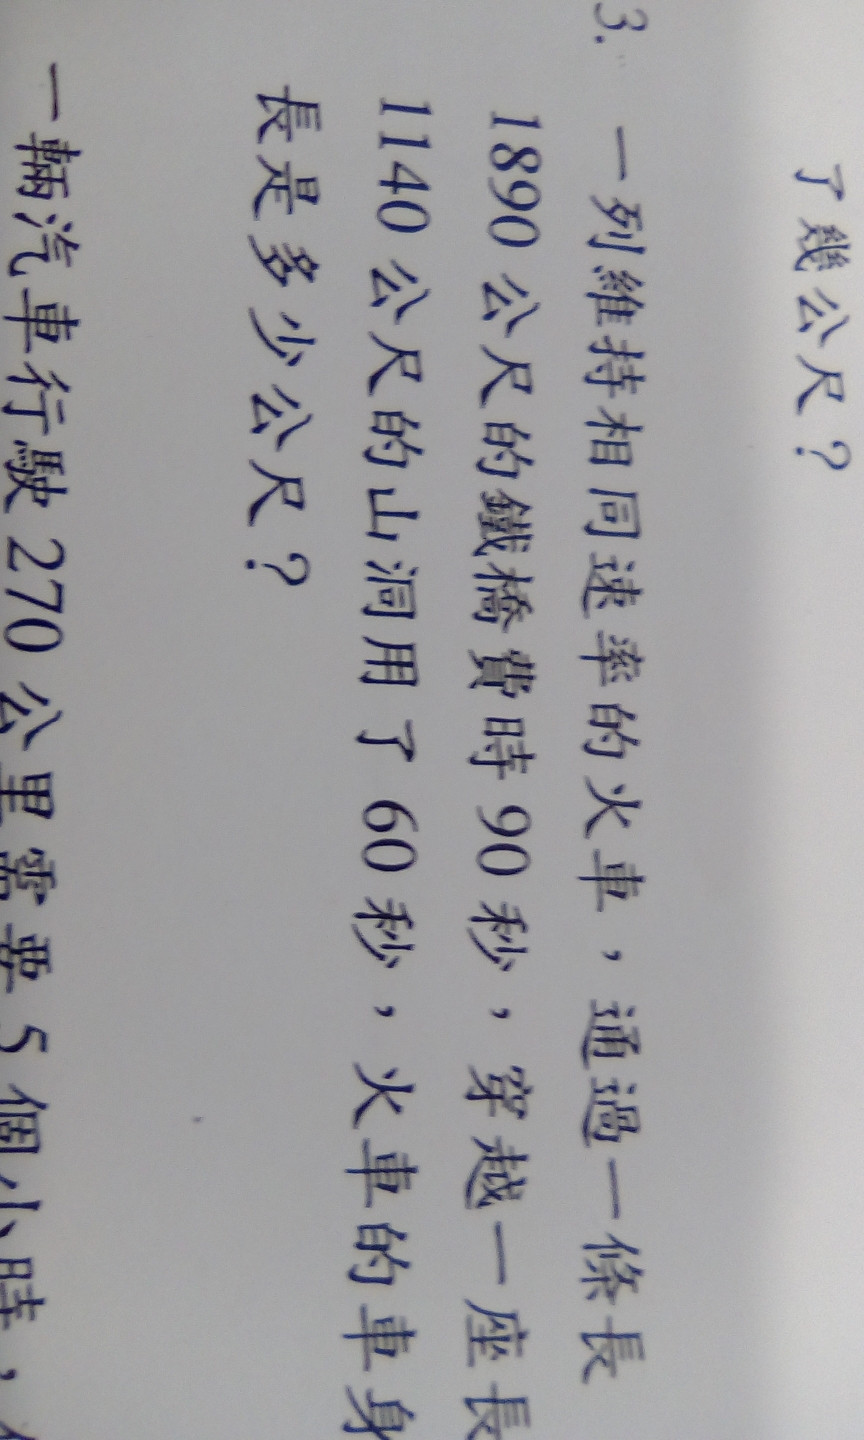 了幾公尺？
3. 一列維持相同速率的火車，通過一條長
1890 公尺的鐵橋費時 90 秒，穿越一座長
1140 公尺的山洞用了 60 秒，火車的車身
長是多少公尺？
一輛汽車行駛 270 公里需要 5 個小時，